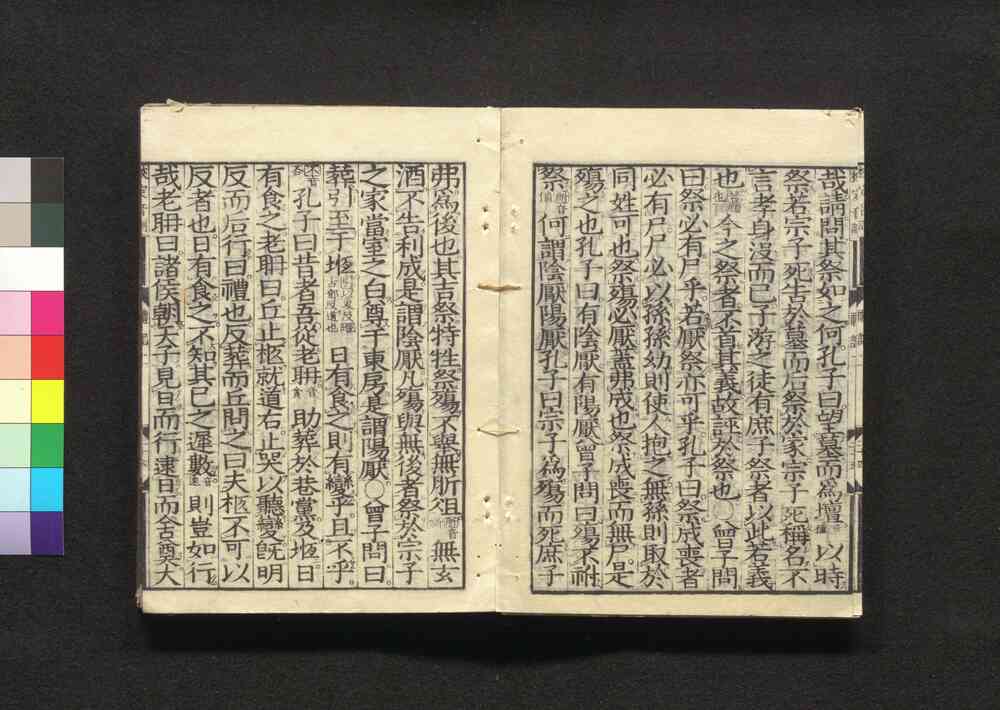 哉請問其祭如之何孔子曰望墓而爲壇以時
祭若宗子死告於墓而后祭於家宗子死稱名不
言孝身没而已子游之徒有庶子祭者以此若義
也今之祭者不首其義故誣於祭也○曾子問
曰祭必有尸乎若厭祭亦可乎孔子曰祭成喪者
必有尸尸必以孫孫幼則使人抱之無孫則取於
同姓可也祭殤必厭蓋弗成也祭成喪而無尸是
殤之也孔子曰有陰厭有陽厭曾子問曰殤不祔
祭何謂陰厭陽厭孔子曰宗子爲殤而死庶子
弗爲後也其吉祭特牲祭殤不舉無肵俎無玄
酒不告利成是謂陰厭凡殤與無後者祭於宗子
之家當室之白尊于東房是謂陽厭○曾子問曰
葬引至于堩日有食之則有變乎且不乎
孔子曰昔者吾從老聃助葬於巷黨及堩日
有食之老聃曰丘止柩就道右止哭以聽變旣明
反而后行曰禮也反葬而丘問之曰夫柩不可以
反者也日有食之不知其已之遲數則豈如行
哉老聃曰諸侯朝天子見日而行逮日而舍奠大